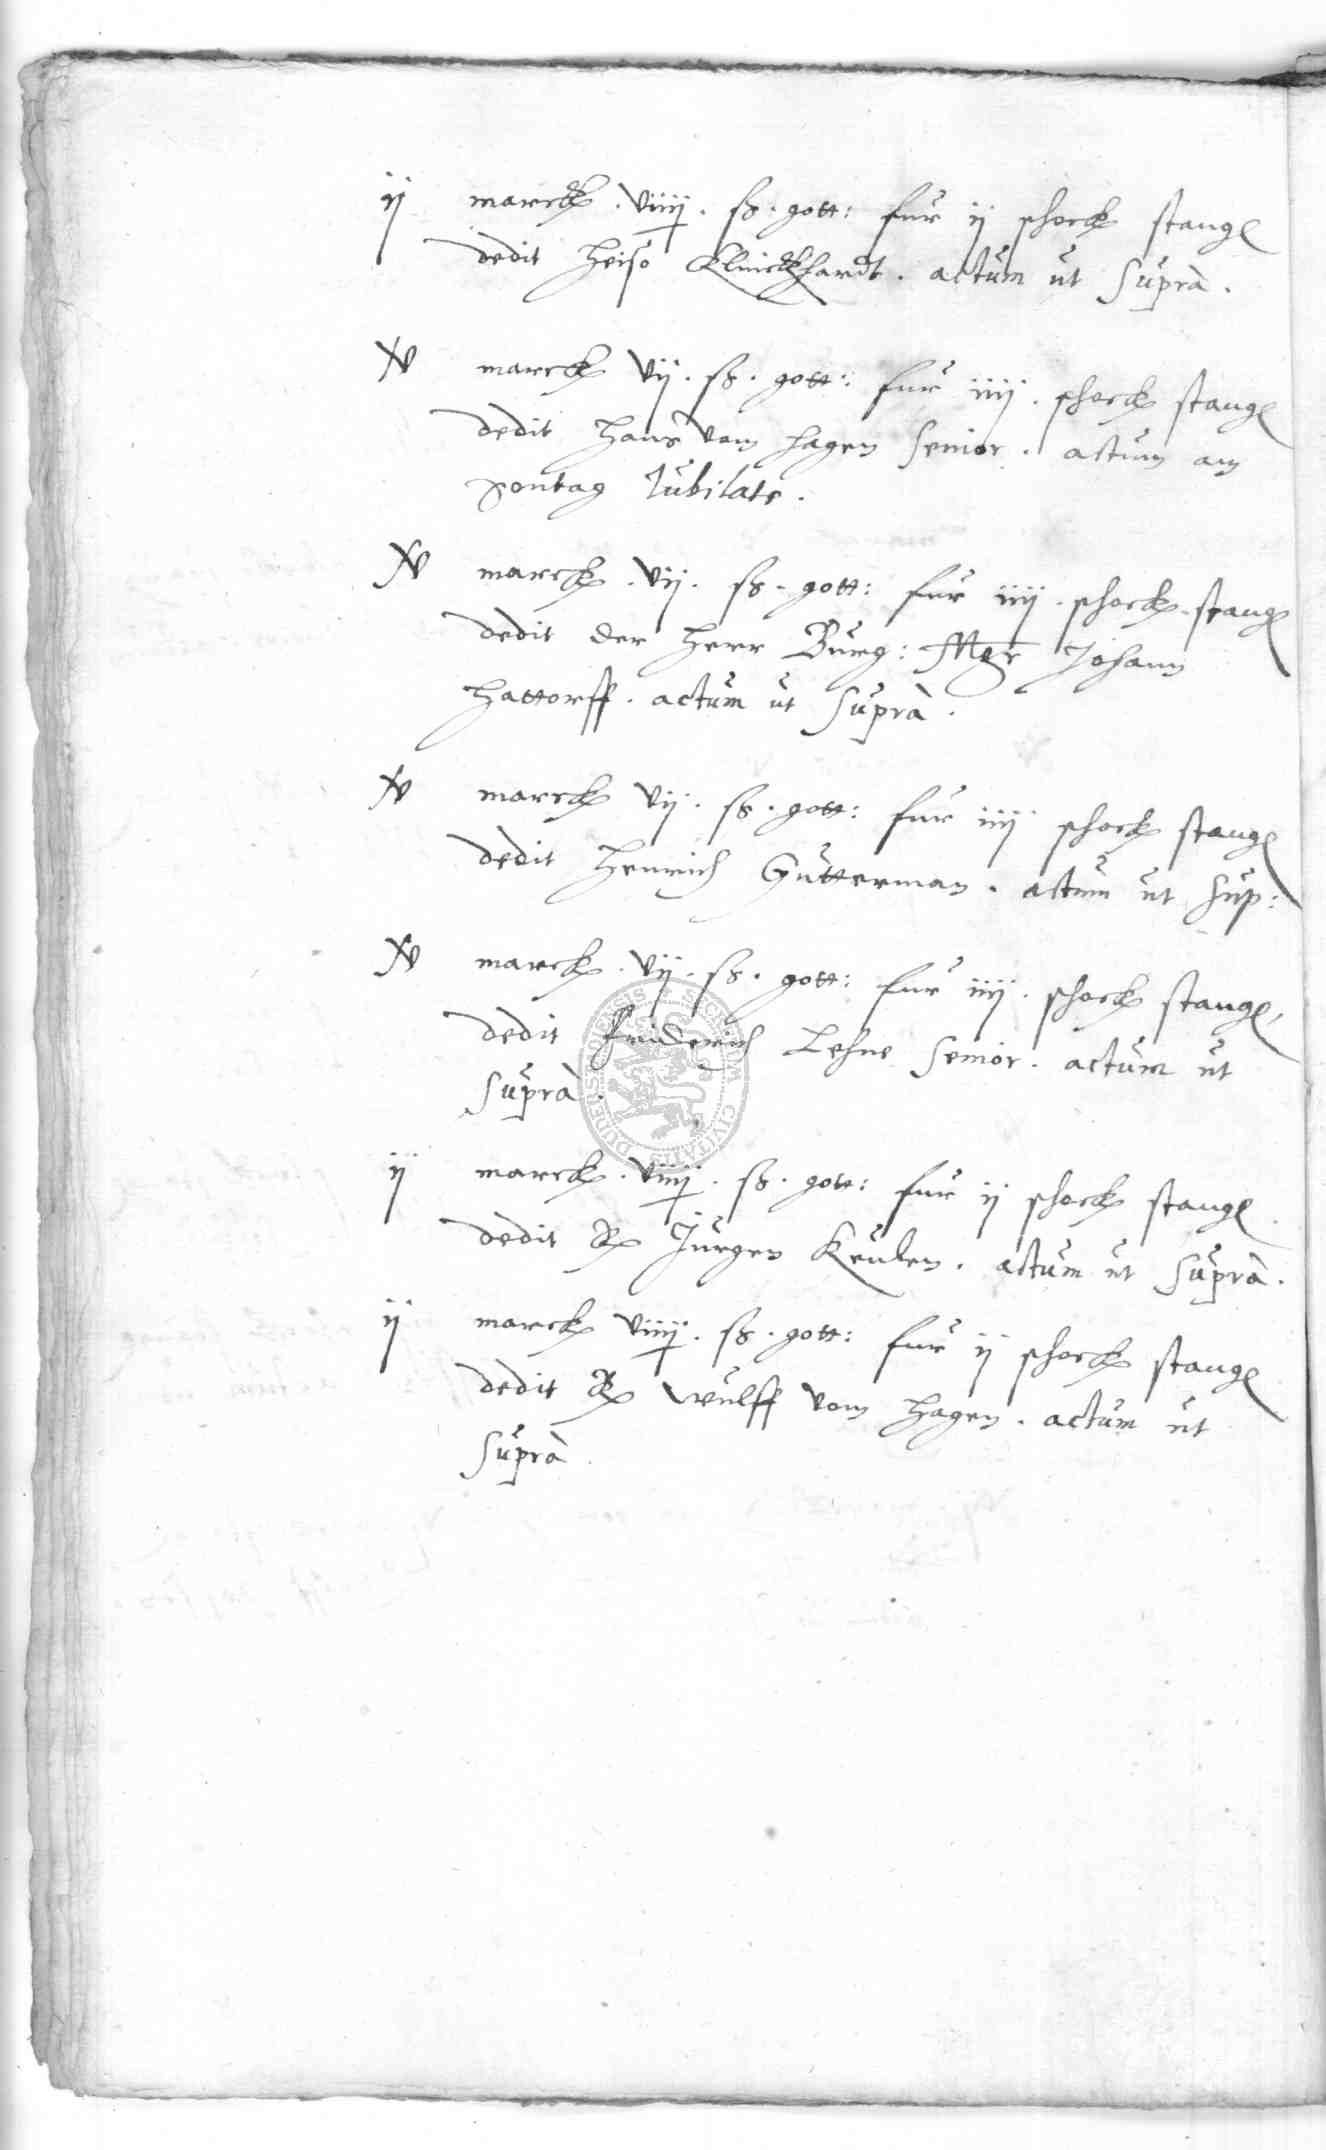 ij marck . viiij . ß . gott : fur ij schock stang
dedit Heiso Klinckhardt . actum ut Suprà .
xv marck vij . ß . gott : fur iiij . schock stang
dedit Hans vom Hagen Senior . actum am
Sontag Iubilate .
xv marck . vij . ß . gott : fur iiij . schock . stang
dedit der Herr Burg : Mgr Johann
Hattorff . actum ut Suprà .
xv marck vij . ß . gott : fur iiij schock stang
dedit Henrich Gutterman . actum ut Sup :
xv marck . vij . ß . gott : fur iiij . schock stang
dedit Friderich Lehne Senior . actum ut
Suprà .
ij marck . viiij . ß . gott : fur ij schock stang
dedit Jurgen Keulen . actum ut Suprà .
ij marck viiij . ß . gott : fur ij schock stang
dedit Wulff vom Hagen . actum ut
Suprà
SECRETUM CIVITATIS DUDERSTADIENSIS